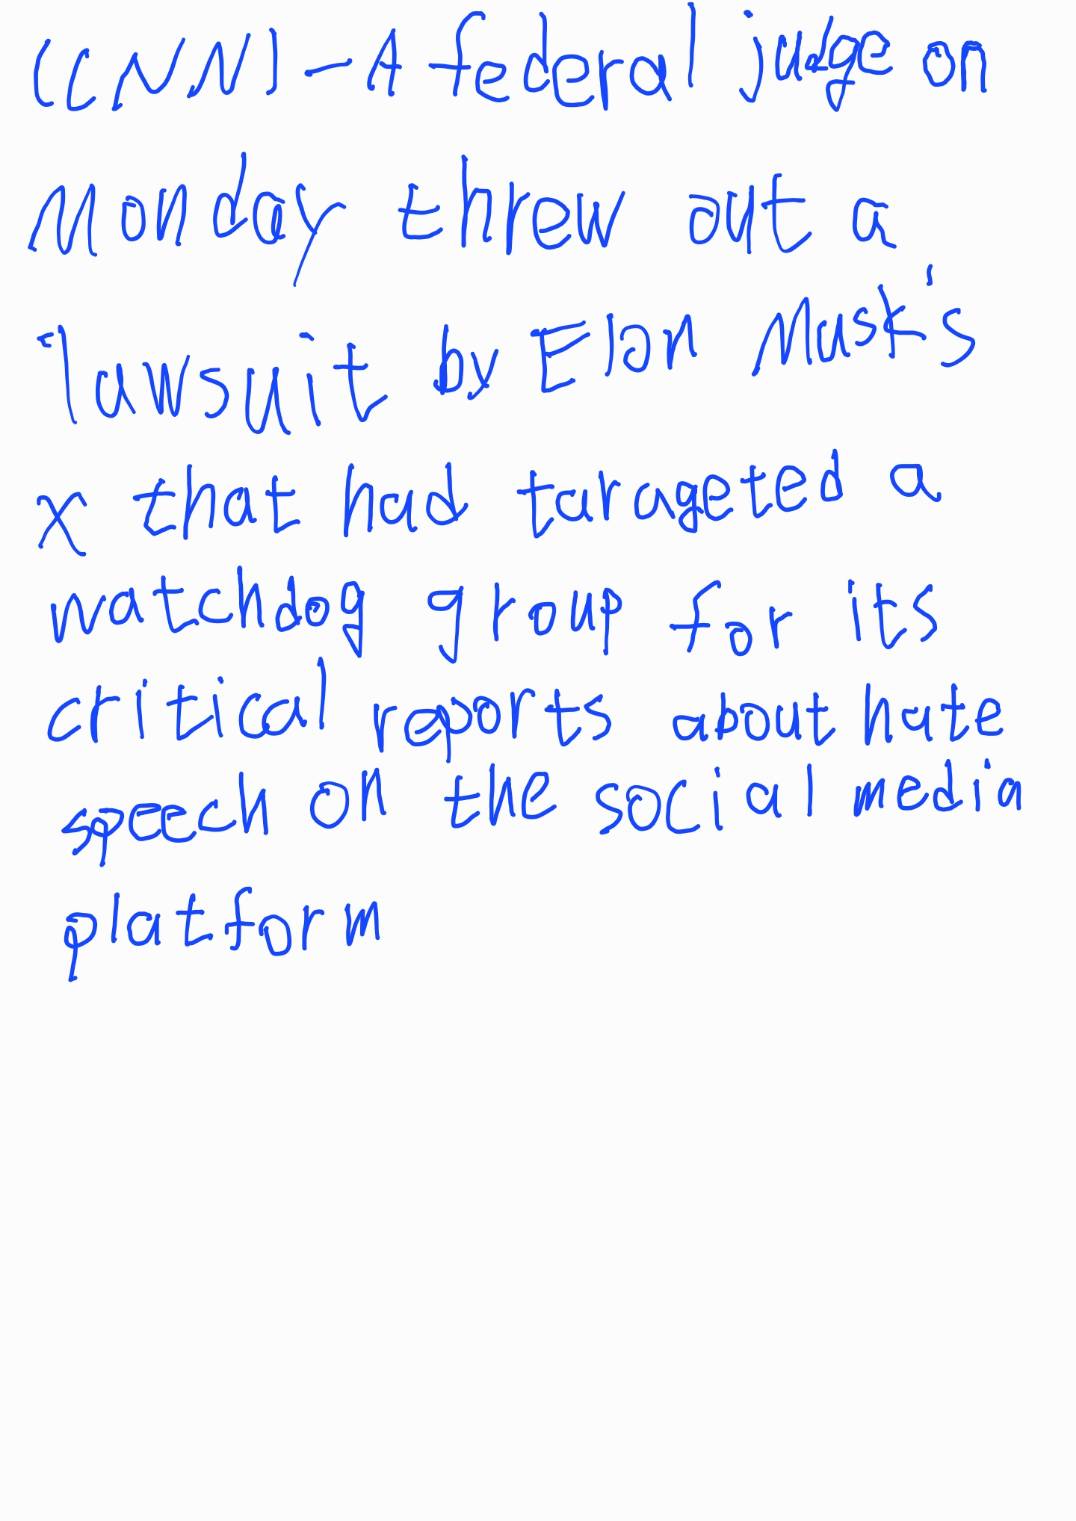 (CNN) - A federal judge on
Monday threw out a
lawsuit by Elon Musk's
X that had tarageted a
watchdog group for its
critical reports about hate
speech on the social media
platform